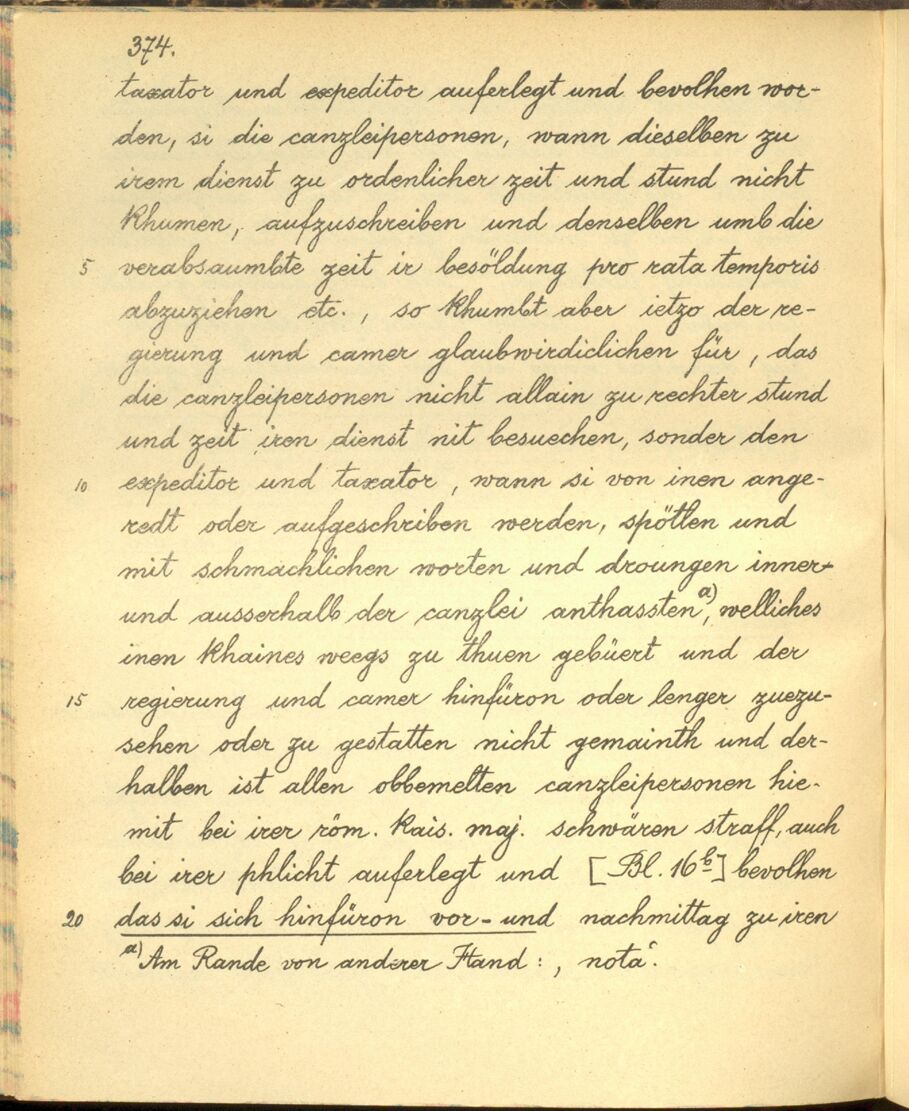 374.
taxator und expeditor auferlegt und bevolhen wor-
den, si die canzleipersonen, wann dieselben zu
irem dienst zu ordenlicher zeit und stund nicht
khumen, aufzuschreiben und denselben umb die
5 verabsaumbte zeit ir besöldung pro rata temporis
abzuziehen etc., so khumbt aber ietzo der re-
gierung und camer glaubwirdiclichen für, das
die canzleipersonen nicht allain zu rechter stund
und zeit iren dienst nit besuechen, sonder den
10 expeditor und taxator, wann si von inen ange-
redt oder aufgeschriben werden, spötlen und
mit schmachlichen worten und droungen inner-
und ausserhalb der canzlei anthassten a), welliches
inen khaines weegs zu thuen gebüert und der
15 regierung und camer hinfüron oder lenger zuezu-
sehen oder zu gestatten nicht gemainth und der-
halben ist allen obbemelten canzleipersonen hie-
mit bei irer röm. kais. maj. schwären straff, auch
bei irer phlicht auferlegt und [Bl. 16b] bevolhen
20 das si sich hinfüron vor- und nachmittag zu iren
a) Am Rande von anderer Hand: ‚nota‘.